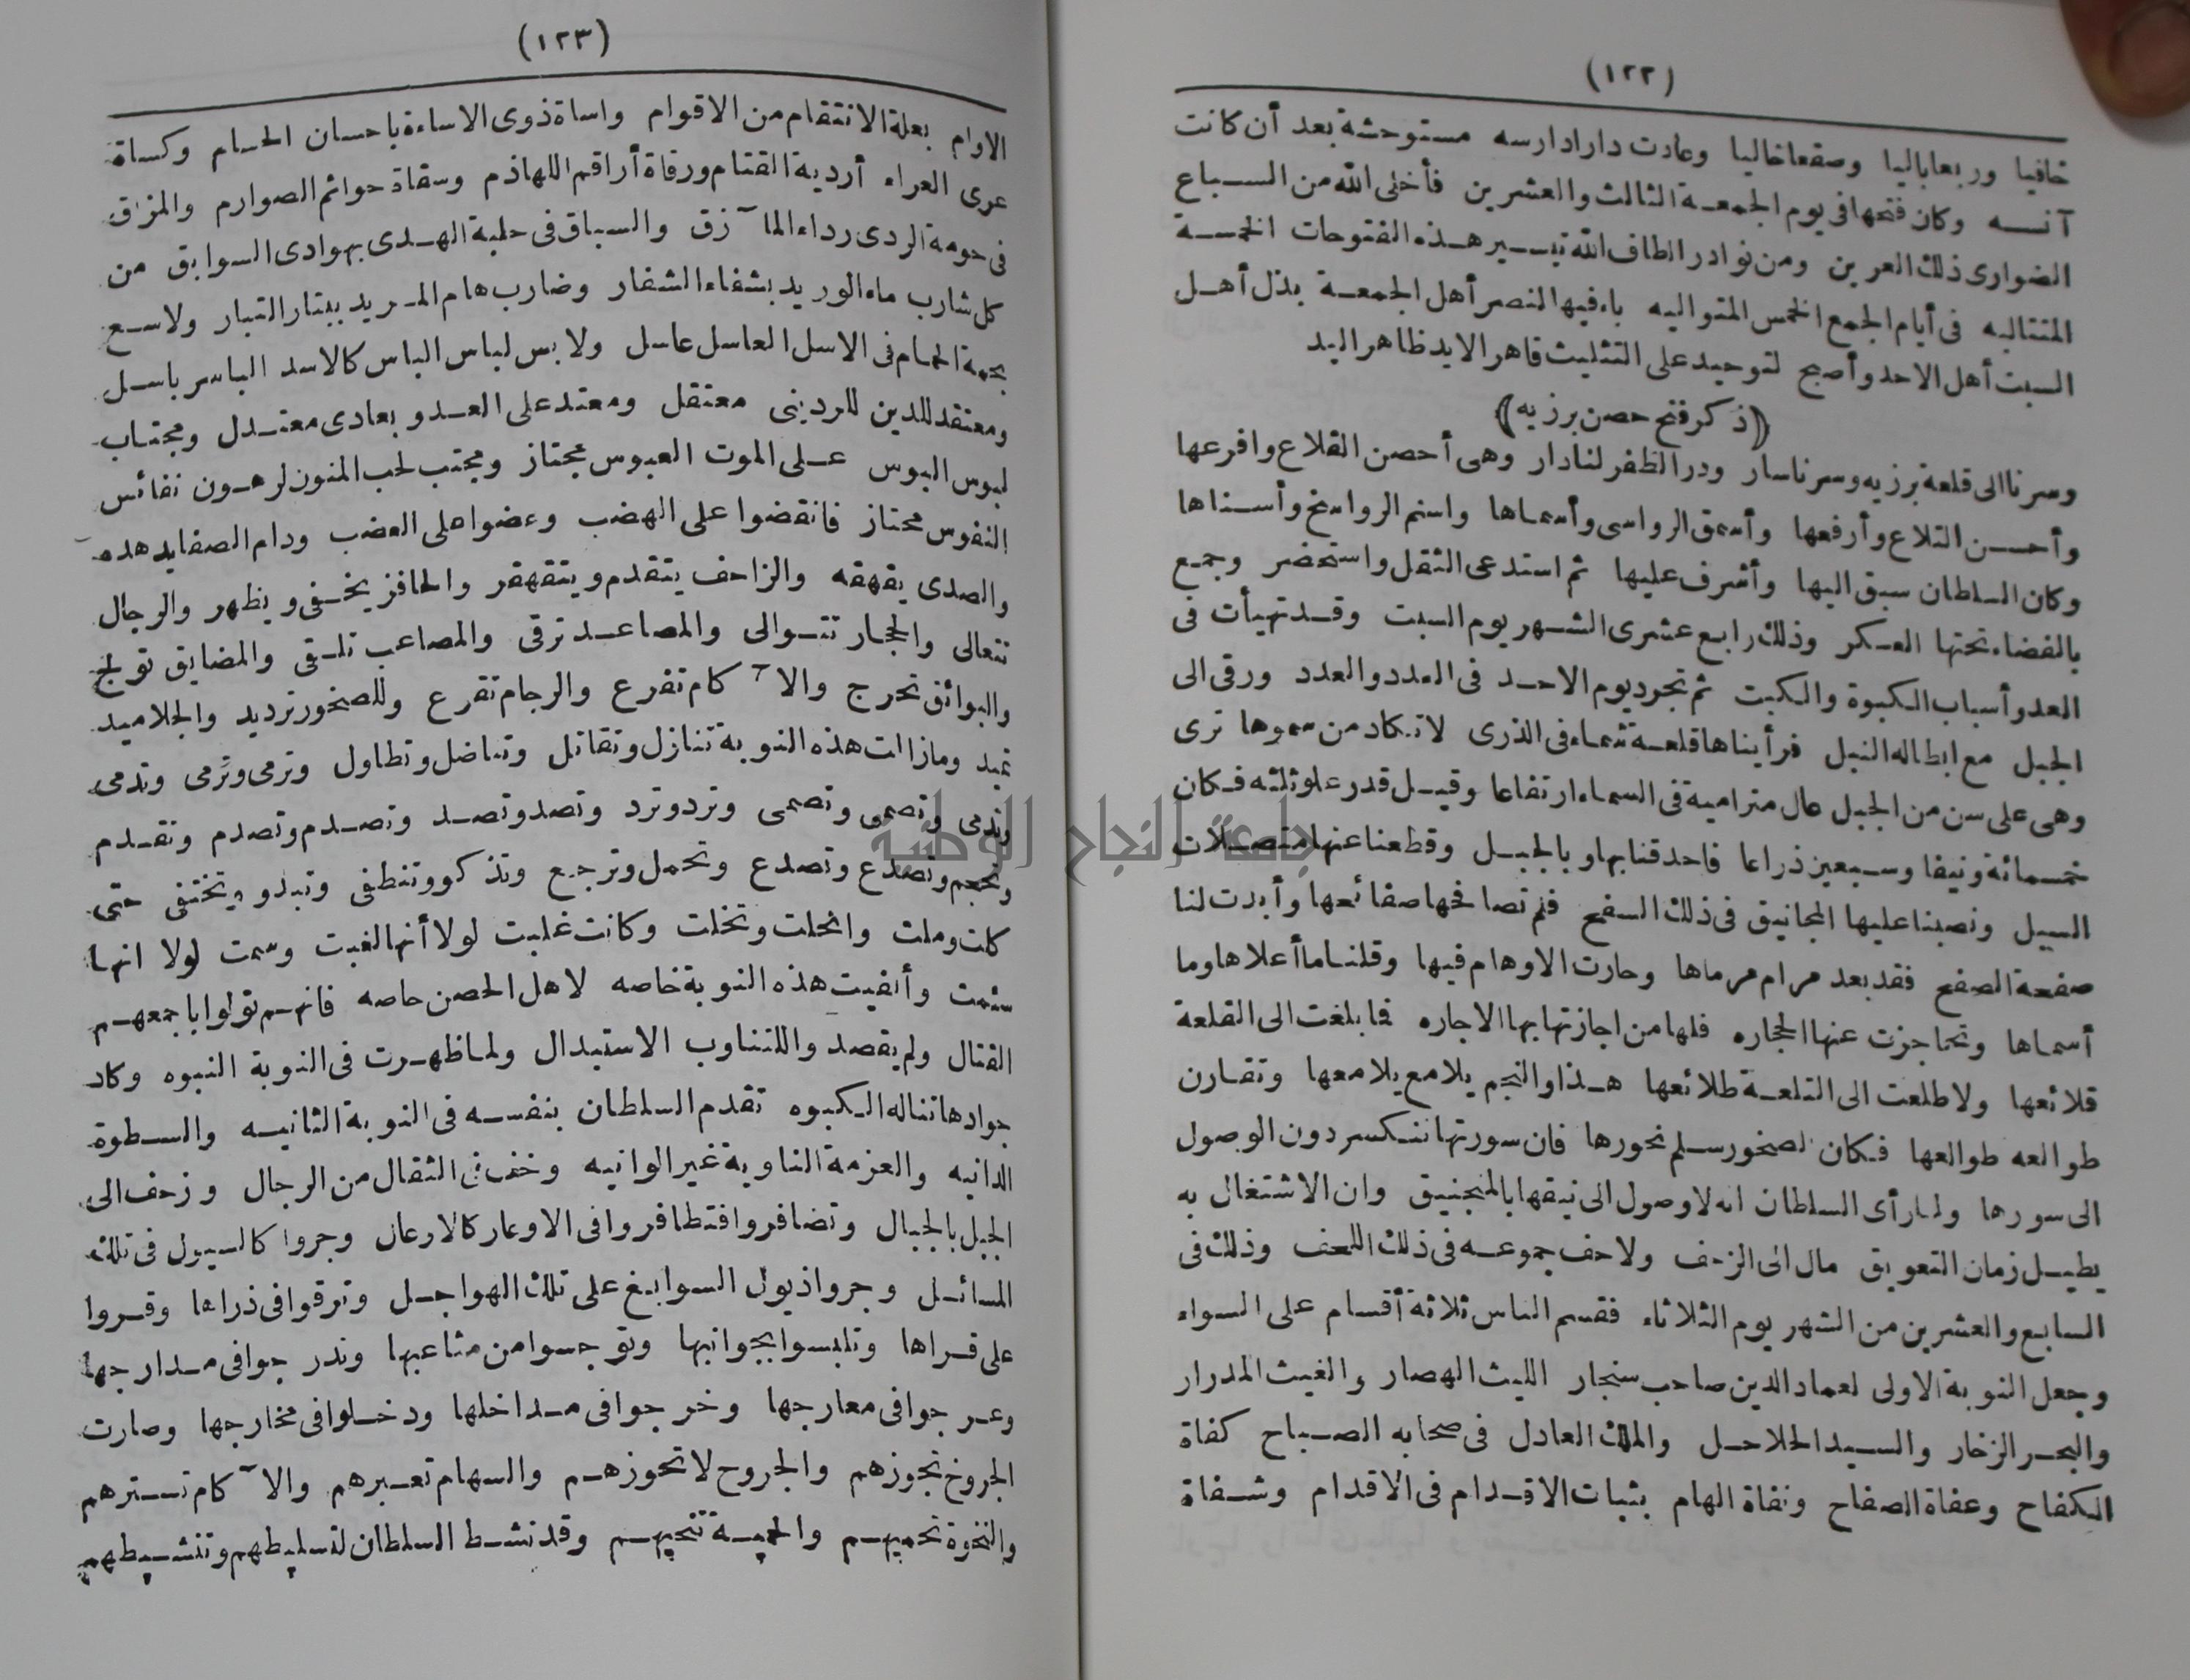 (١٢٢)
خافيا وربعا باليا وصقعا خاليا وعادت دارا دارسه مستوحشة بعد أن كانت
آنسه وكان فتحها فى يوم الجمعة الثالث والعشرين فأخلى الله من السباع
الضوارى ذلك العرين ومن نوادر الطاف الله تيسير هذه الفتوحات الخمسة
المتتاليه فى أيام الجمع الخمس المتواليه باء فيها النصر أهل الجمعة بذل أهل
السبت أهل الاحد وأصبح التوحيد على التثليث قاهر الايد ظاهر اليد
(ذكر فتح حصن برزيه)
وسرنا الى قلعة برزيه وسرنا سار ودر الظفر لنا دار وهى أحصن القلاع وافرعها
وأحسن التلاع وأرفعها وأسمق الرواسى وأسماها واسنم الرواسخ وأسناها
وكان السلطان سبق اليها وأشرف عليها ثم استدعى الثقل واستحضر وجمع
بالفضاء تحتها العسكر وذلك رابع عشرى الشهر يوم السبت وقد تهيأت فى
العدو أسباب الكبوة والكبت ثم تجرد يوم الاحد فى العدد والعدد ورقى الى
الجبل مع ابطاله النبل فرأيناها قلعة شماء فى الذرى لا تكاد من سموها ترى
وهى على سن من الجبل عال مترامية فى السماء ارتفاعا وقيل قدر علو ثلثه فكان
خمسمائة ونيفا وسبعين ذراعا فاحدقنا بها وبالجبل وقطعنا عنها متصلات
السبيل ونصبنا عليها المجانيق فى ذلك السفح فلم تصافحها صفائحها وأبدت لنا
صفحة الصفح فقد بعد مرام مرماها وحارت الاوهام فيها وقلنا ما أعلاها وما
أسماها وتحاجزت عنها الحجاره فلها من اجازتها بها الاجاره فما بلغت الى القلعة
قلائعها ولا طلعت الى التلعة طلائعها هذا والنجم يلامع يلامعها وتقارن
طوالعه طوالعها فكان لصخور سلم نحورها فان سورتها تنكسر دون الوصول
الى سورها ولما رأى السلطان انه لا وصول الى نيقها بالمنجنيق وان الاشتغال به
يطيل زمان التعويق مال الى الزحف ولاحف جموعه فى ذلك اللحف وذلك فى
السابع والعشرين من الشهر يوم الثلاثاء فقسم الناس ثلاثة أقسام على السواء
وجعل النوبة الاولى لعماد الدين صاحب سنجار الليث الهصار والغيث المدرار
والبحر الزخار والسيد الحلاحل والملك العادل فى صحابه الصباح كفاة
الكفاح وعفاة الصفاح ونفاة الهام بثبات الاقدام فى الاقدام وشفاة
(١٢٣)
الاوام بعلة الانتقام من الاقوام واساة ذوى الاساءة باحسان الحسام وكساة
عرى العراء أردية القتام ورقاة أراقم اللهاذم وسقاة حوائم الصوارم والمزاق
فى حومة الردى رداء المآزق والسباق فى حلبة الهدى بهوادى السوابق من
كل شارب ماء الوريد بشفاء الشفار وضارب هام المريد ببتار التبار ولاسع
بحمة الحمام فى الاسل العاسل عاسل ولابس لباس الباس كالاسد الباسر باسل
ومعتقد للدين للردينى معتقل ومعتد على العدو بعادى معتدل ومجتاب
لبوس البوس على الموت العبوس مجتاز ومجتب لحب المنون لرهون نفائس
النفوس محتاز فانقضوا على الهضب وعضوا على العضب ودام الصفا يدهده
والصدى يقهقه والزاحف يتقدم ويتقهقر والحافز يخفى ويظهر والرجال
تتعالى والحجار تتوالى والمصاعد ترقى والمصاعب تلقى والمضايق تولج
والبوائق تحرج والآكام تفرع والرجام تقرع وللصخور ترديد والجلاميد
تميد وما زالت هذه النوبة تنازل وتقاتل وتناضل وتطاول وترمى وترمى وتدمى
وتدمى وتصمى وتصمى وترد وترد وتصد وتصد وتصدم وتصدم وتقدم
وتحجم وتصدع وتصدع وتحمل وترجع وتذكو وتنطفى وتبدو وتختفى حتى
كلت وملت وانحلت وتخلت وكانت غلبت لولا أنها لغبت وسمت لولا انها
سئمت وأنفيت هذه النوبة خاصه لاهل الحصن حاصه فانهم تولوا باجمعهم
القتال ولم يقصدوا للتناوب الاستبدال ولما ظهرت فى النوبة النبوه وكاد
جوادها تناله الكبوه تقدم السلطان بنفسه فى النوبة الثانيه والسطوة
الدانيه والعزمة الناوية غير الوانيه وخف فى الثقال من الرجال وزحف الى
الجبل بالجبال وتضافروا فتطافروا فى الاوعار كالارعال وجروا كالسيول فى تلك
المسائل وجروا ذيول السوابغ على تلك الهواجل وترقوا فى ذراها وقروا
على قراها وتلبسوا بجوانبها وتوجسوا من مثاعبها وتدرجوا فى مدارجها
وعرجوا فى معارجها وخرجوا فى مداخلها ودخلوا فى مخارجها وصارت
الجروخ تجوزهم والجروح لا تحوزهم والسهام تعبرهم والآكام تسترهم
والنخوة تحميهم والحمية تنخيهم وقد نشط السلطان لتسليطهم وتنشيطهم
جامعة النجاح الوطنية